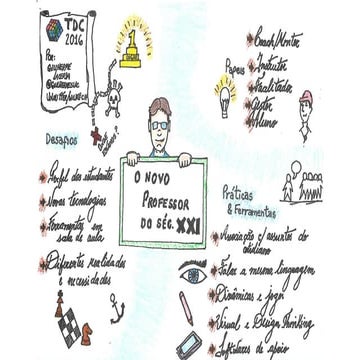 TDC
2016
Por:
1
Desafios
Perfil dos estudantes
Novas tecnologias
Ferramentas em
sala de aula
Diferentes realidades
e necessidades
O NOVO
PROFESSOR
DO SÉC. XXI
Papéis
Coach/Mentor
Instrutor
Facilitador
Gestor
Aluno
Práticas
& Ferramentas
Associação c/ assuntos do
cotidiano
Falar a mesma linguagem
Dinâmicas e jogos
Visual e Design Thinking
Softwares de apoio